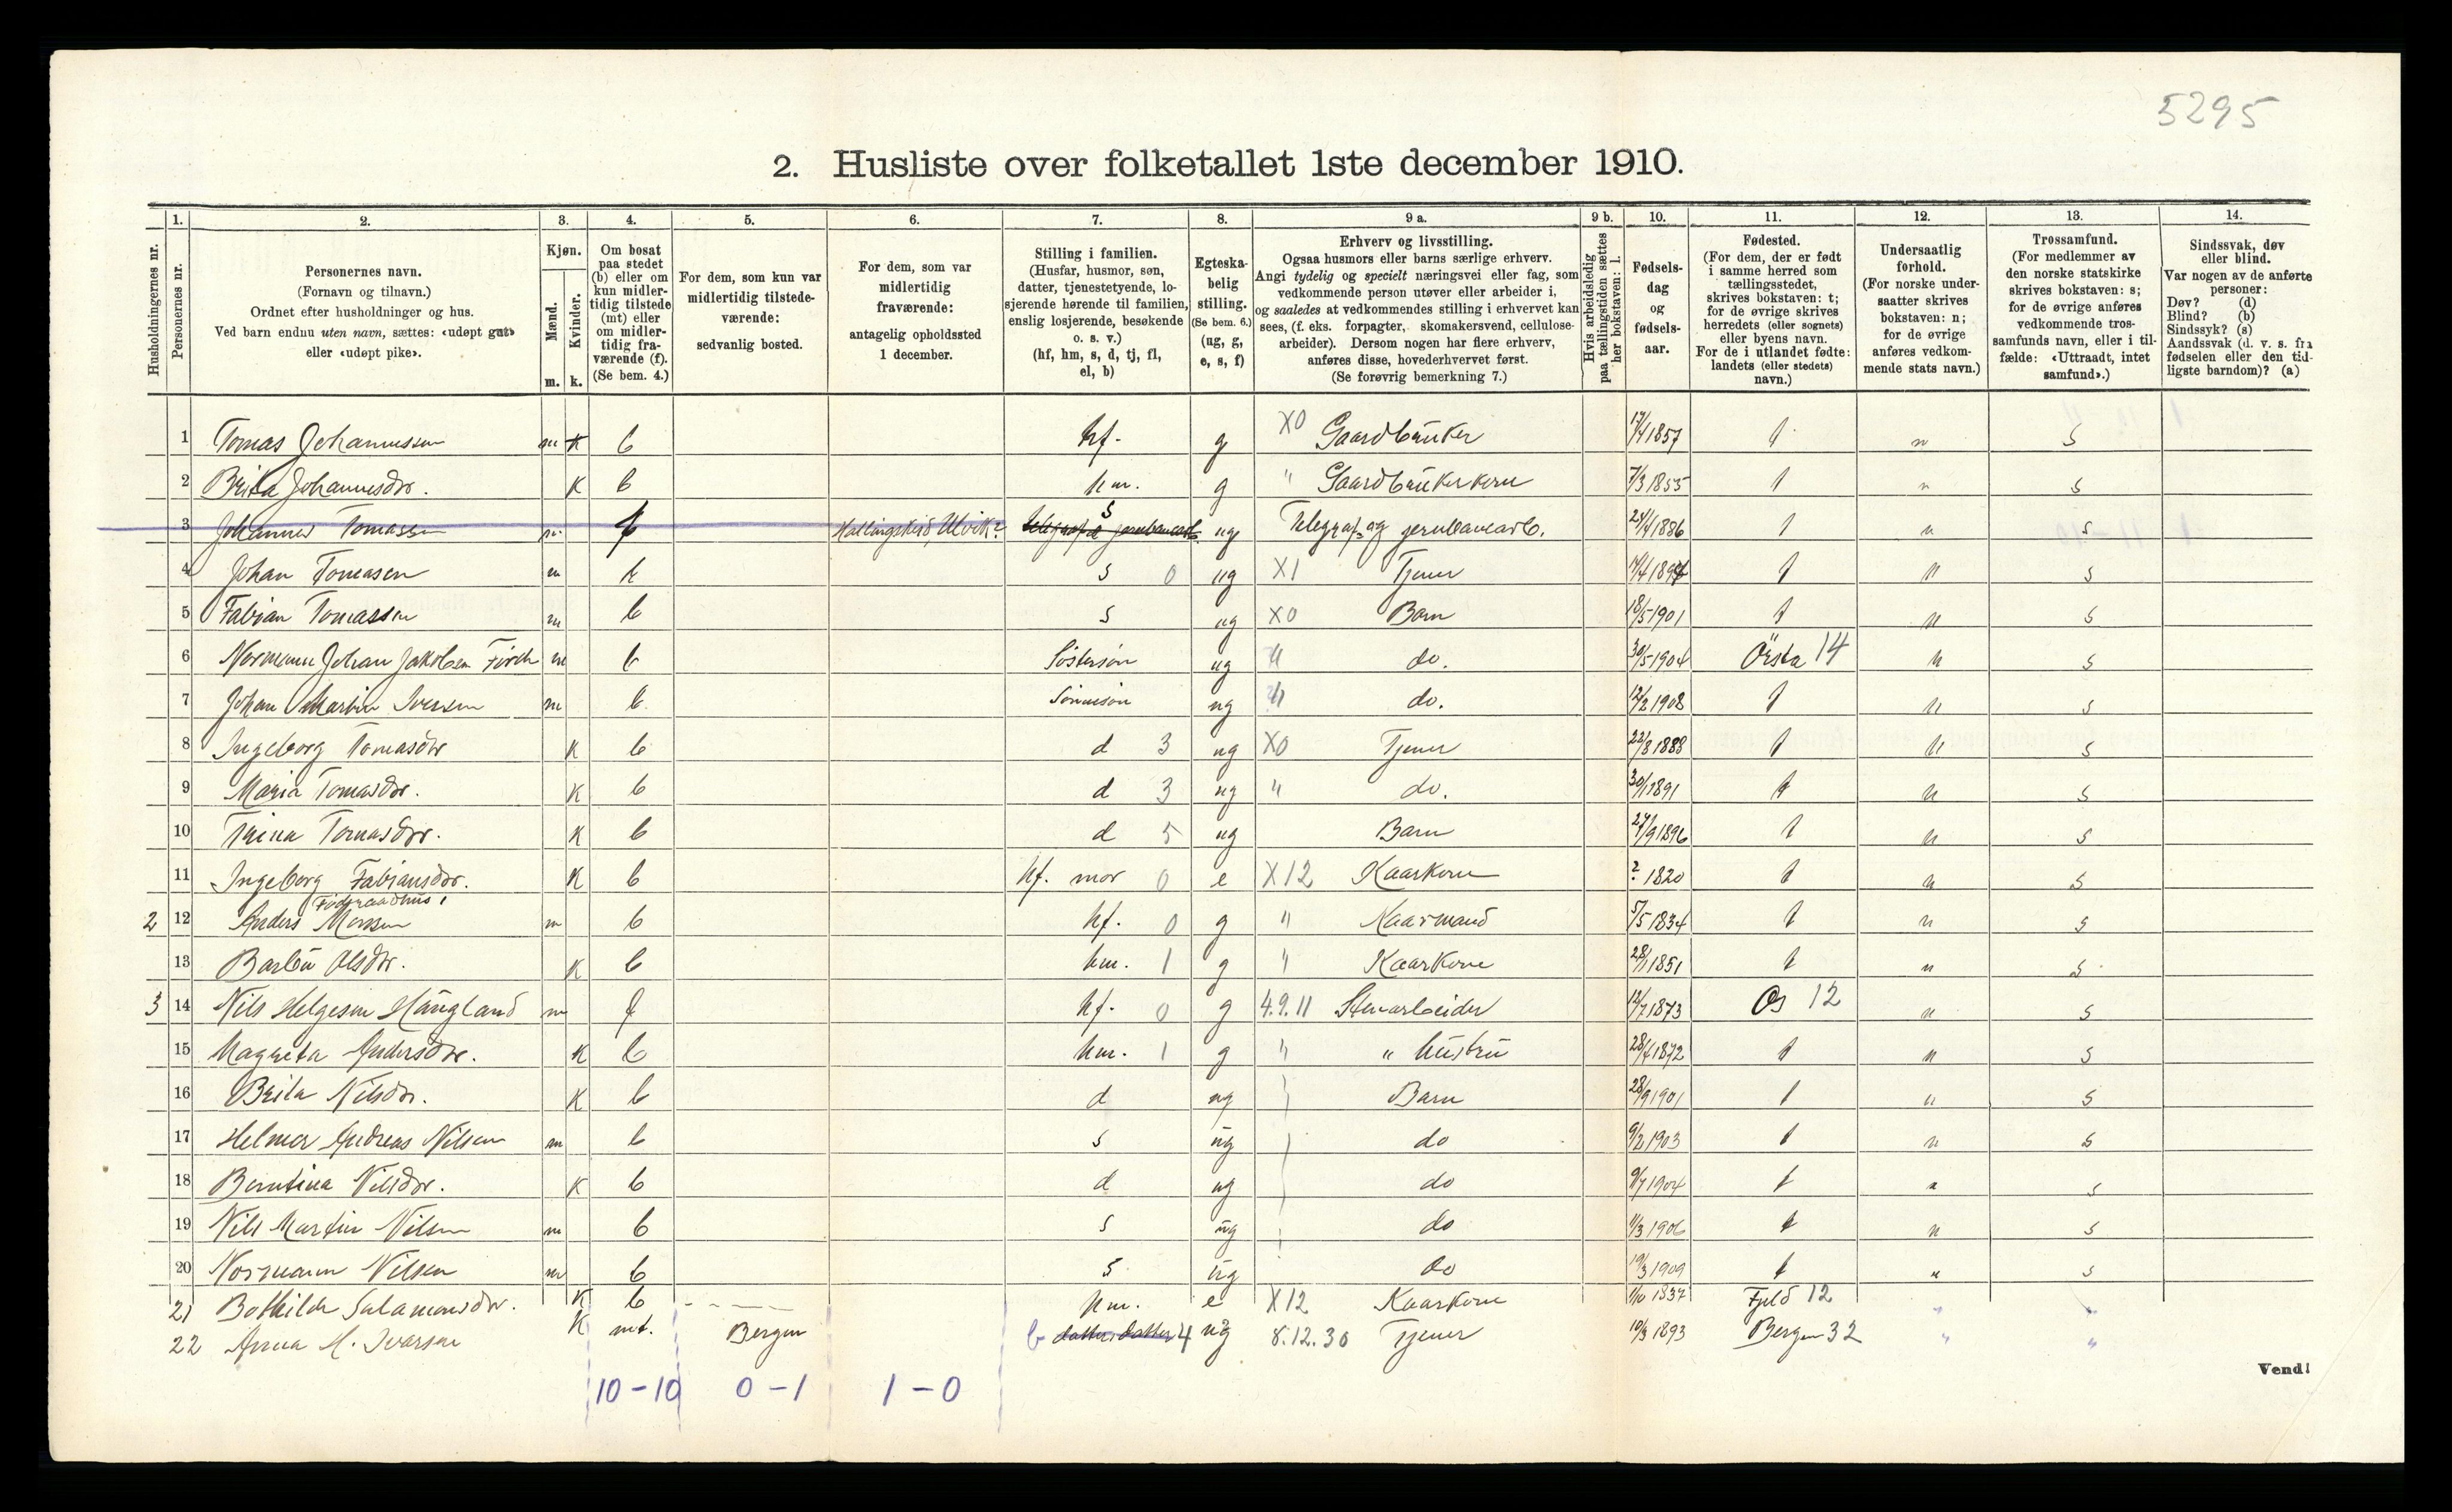 5295
2. Husliste over folketallet 1ste december 1910.
Husholdningernes nr.
1. Personernes nr.
2. Personernes navn. (Fornavn og tilnavn.) Ordnet efter husholdninger og hus. Ved barn endnu uten navn, sættes: «udøpt gut» eller «udøpt pike».
3. Kjøn. Mænd. m. Kvinder. k.
4. Om bosat paa stedet (b) eller om kun midlertidig tilstede (mt) eller om midlertidig fraværende (f). (Se bem. 4.)
5. For dem, som kun var midlertidig tilstedeværende: sedvanlig bosted.
6. For dem, som var midlertidig fraværende: antagelig opholdssted 1 december.
7. Stilling i familien. (Husfar, husmor, søn, datter, tjenestetyende, losjerende hørende til familien, enslig losjerende, besøkende o. s. v.) (hf, hm, s, d, tj, fl, el, b)
8. Egteskabelig stilling. (Se bem. 6.) (ug, g, e, s, f)
9 a. Erhverv og livsstilling. Ogsaa husmors eller barns særlige erhverv. Angi tydelig og specielt næringsvei eller fag, som vedkommende person utøver eller arbeider i, og saaledes at vedkommendes stilling i erhvervet kan sees, (f. eks. forpagter, skomakersvend, cellulosearbeider). Dersom nogen har flere erhverv, anføres disse, hovederhvervet først. (Se forøvrig bemerkning 7.)
9 b. Hvis arbeidsledig paa tællingstiden sættes her bokstaven: l.
10. Fødselsdag og fødselsaar.
11. Fødested. (For dem, der er født i samme herred som tællingsstedet, skrives bokstaven: t; for de øvrige skrives herredets (eller sognets) eller byens navn. For de i utlandet fødte: landets (eller stedets) navn.)
12. Undersaatlig forhold. (For norske undersaatter skrives bokstaven: n; for de øvrige anføres vedkommende stats navn.)
13. Trossamfund. (For medlemmer av den norske statskirke skrives bokstaven: s; for de øvrige anføres vedkommende trossamfunds navn, eller i tilfælde: «Uttraadt, intet samfund».)
14. Sindssvak, døv eller blind. Var nogen av de anførte personer: Døv? (d) Blind? (b) Sindssyk? (s) Aandssvak (d. v. s. fra fødselen eller den tidligste barndom)? (a)
1 Tomas Johannessen m K b hf. g X0 Gaardbruker 17/4 1857 t n s
2 Brita Johannesdr. K b hm. g " Gaardbrukerkone 7/3 1855 t n s
3 Johannes Tomassen m. f Hallingskeid, Ulvik? s ug Telegraf og jernbanearb. 1886 t n s
4 Johan Tomasen m b s 0 ug X1 Tjener t n s
5 Fabian Tomassen m b s ug X0 Barn 18/5 1901 t n s
6 Normann Johan Jakobsen m b Søstersøn ug " do. 30/5 1904 Ørsta 14 n s
7 Johan Martin Iversen m b Sønnesøn ug " do. 12/2 1908 t n s
8 Ingeborg Tomasdtr K b d 3 ug X0 Tjener 22/8 1888 t n s
9 Maria Tomasdr. K b d 3 ug " do. 30/1 1891 t n s
10 Trina Tomasdtr. K b d 5 ug Barn 27/9 1896 t n s
11 Ingeborg Fabiansdr. K b hf. mor 0 e X12 Kaarkone ? 1820 t n s
Føderaadhus
2 12 Anders Monsen m b hf. 0 g " Kaarmand 5/5 1834 t n s
13 Barbu Olsdtr. K b hm. 1 g " Kaarkone 28/1 1851 t n s
3 14 Nils Helgesen Haugland m f hf. 0 g 4.9.11 Stenarbeider 12/7 1873 Os 12 n s
15 Magreta Andersdtr. K b hm. 1 g " " hustru 28/4 1872 t n s
16 Brita Nilsdr. K b d ug Barn 28/9 1901 t n s
17 Helmer Andreas Nilsen m b s ug do 9/2 1903 t n s
18 Berntina Nilsdr. K b d ug do 9/7 1904 t n s
19 Nils Martin Nilsen m b s ug do 11/3 1906 t n s
20 Normann Nilsen m b s ug do 19/3 1909 t n s
21 Bothilde Salamonsdr. K b hm. e X12 Kaarkone 1837 Fjeld 12 " "
22 Anna M. Ivarsen K mt. Bergen b datterdatter 4 ug 8.12.30 Tjener 10/3 1893 Bergen 32 " "
10 - 10 0 - 1 1 - 0
Vend!